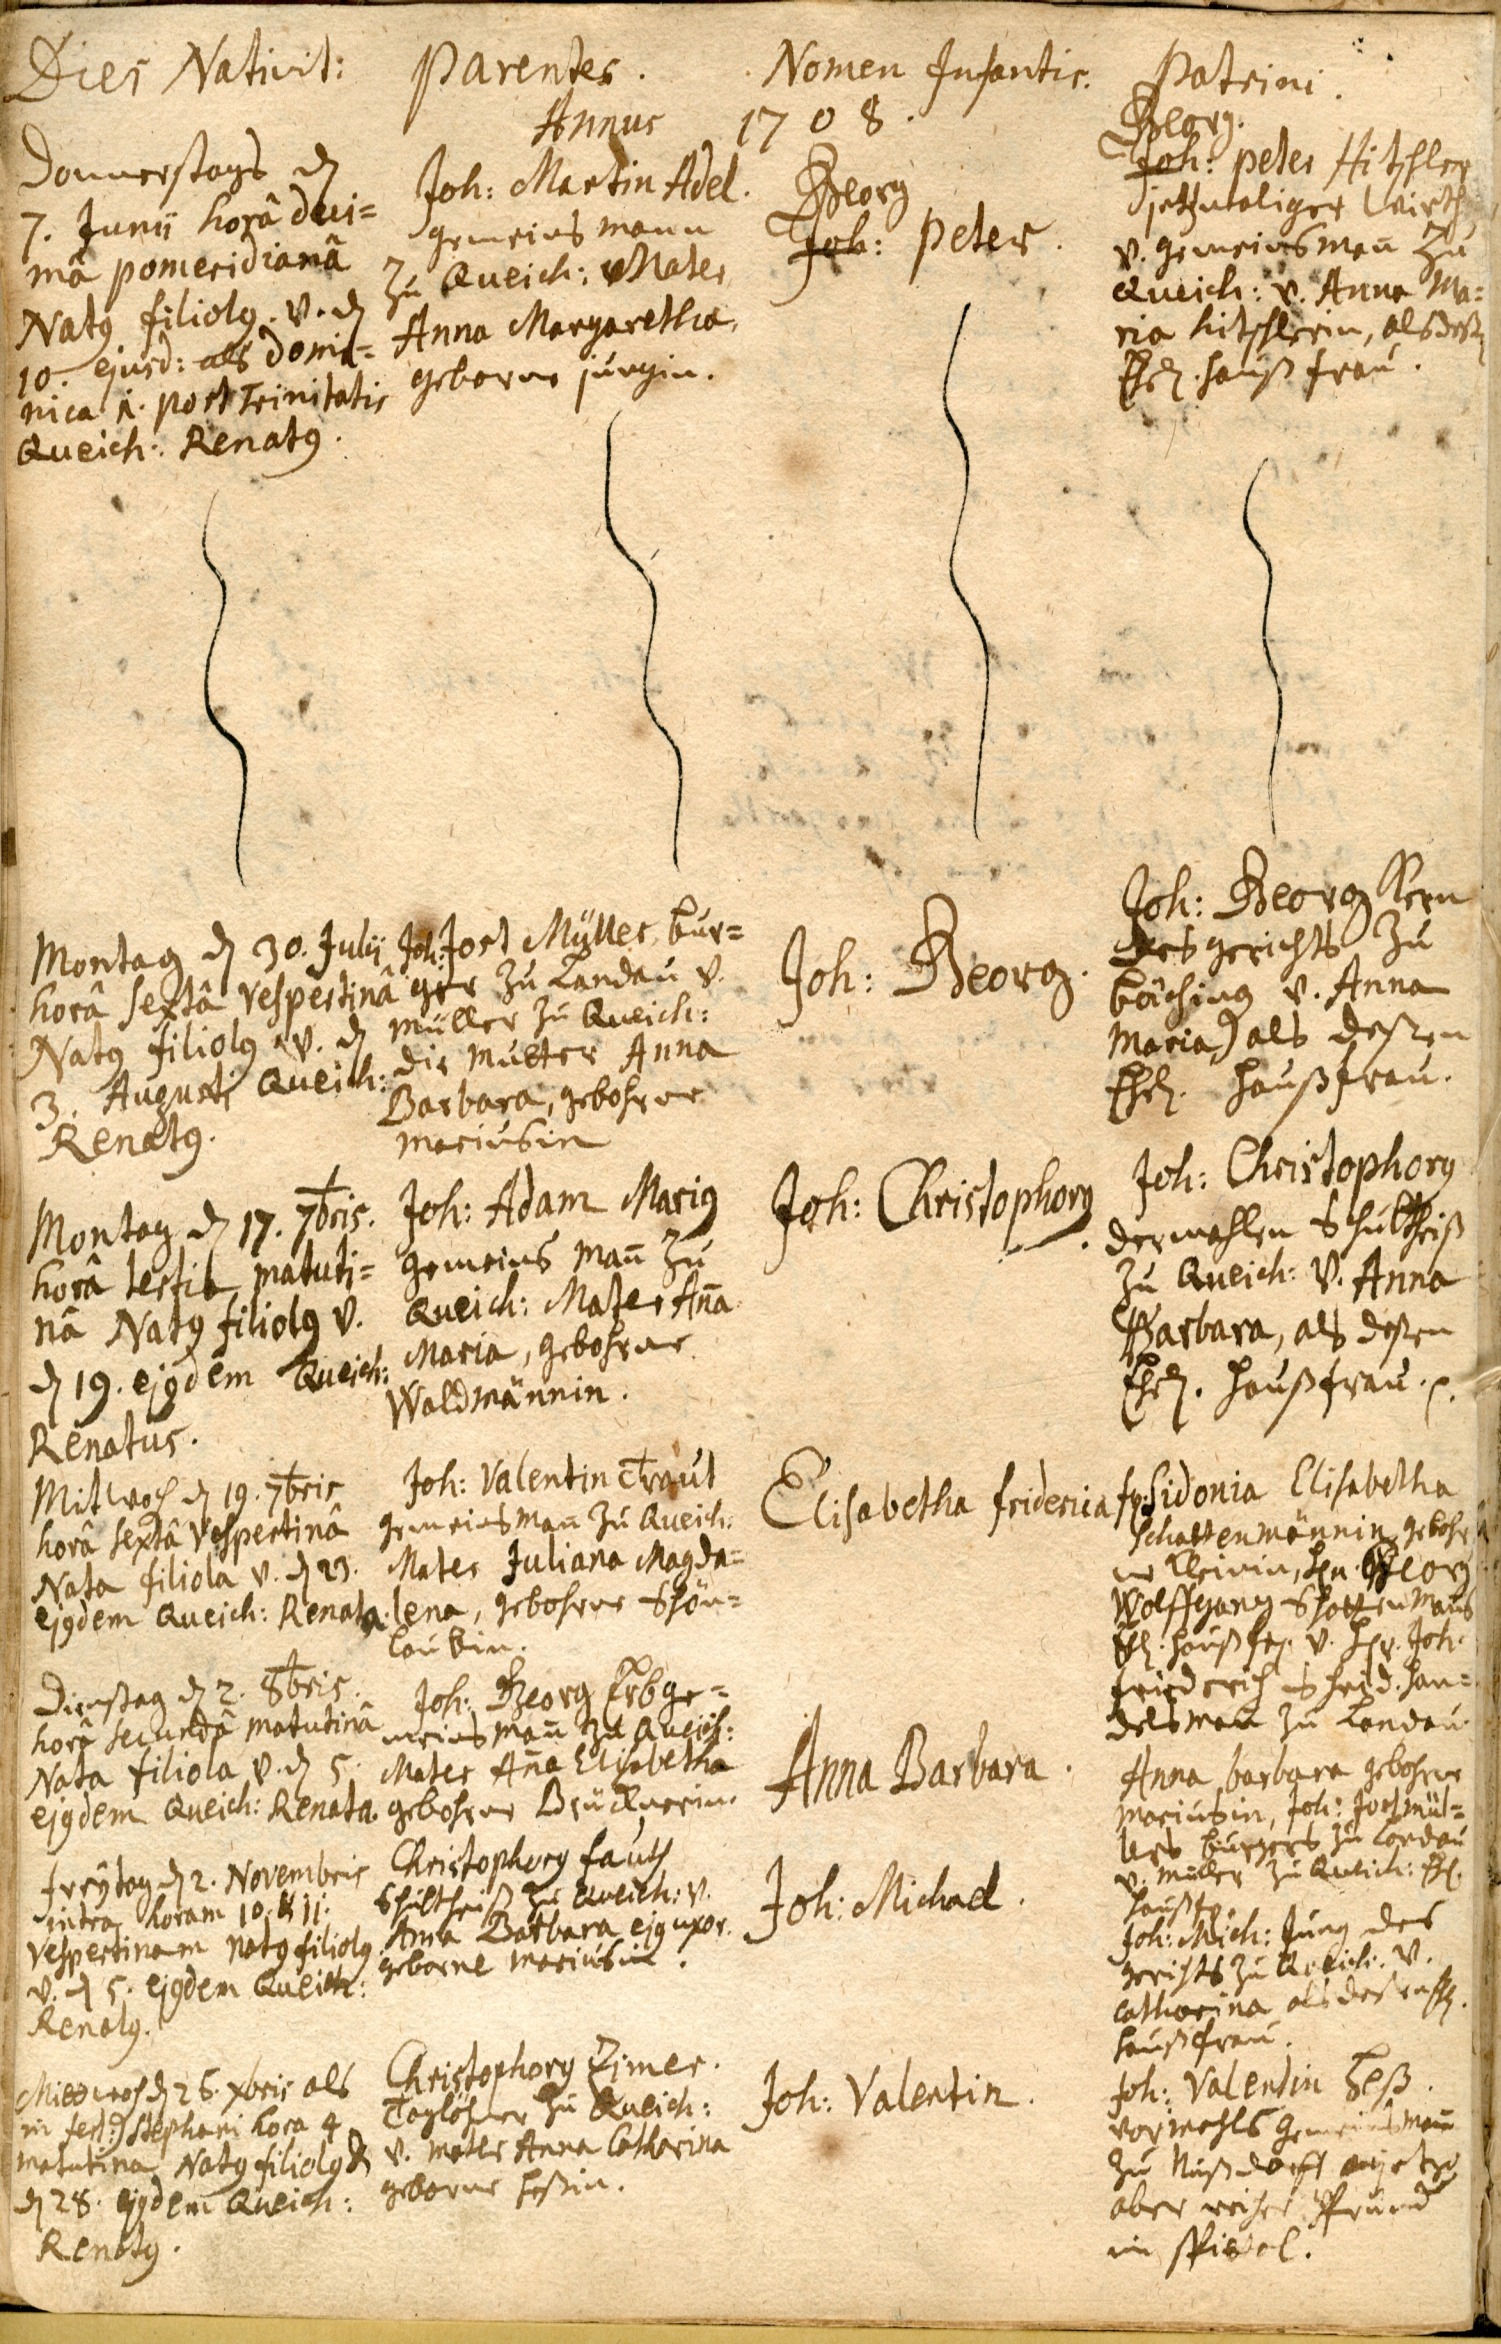 Dies Nativit:
Parentes.
Nomen Infantis.
Patrini.
Annus 1708.
Donnerstags d.
7. Junii horâ deci=
mâ pomeridianâ
Natq filiolq. v. d.
10. ejusd: als Domi=
nica 1. post Trinitatis
Queich: Renatq.
Joh: Martin Adel.
gemeinsmann
zu Queich: Mater
Anna Margaretha,
geborne jungin.
Georg
Joh: Peter.
Georg.
Joh: Peter Hitschler
jetzmaliger Wirth,
v. gemeinsman zu
Queich: v. Anna Ma=
ria hitschlerin, als deßen
Ehel. hauß frau.
Montag d. 30. Julii
horâ sextâ vespertinâ
Natq filiolq v. d.
3. Augusti Queich:
Renatq.
Joh: Jost Müller, bur=
ger zu Landau v.
müller zu Queich:
die mutter Anna
Barbara, gebohrne
mariusin
Joh: Georg.
Joh: Georg Kern
des gerichts zu
böching v. Anna
Maria, als deßen
Ehel. haußfrau.
Montag d. 17. 7bris.
horâ tertia, matuti=
nâ Natq filiolq v.
d. 19. ejqdem Queich:
Renatus.
Joh: Adam Mariq
gemeins man zu
Queich: Mater Aña
Maria, gebohrne
Waldmännin.
Joh: Christophorq.
Joh: Christophorq
dermahlen Schultheiß
zu Queich: v. Anna
Barbara, als deßen
Ehel. haußfrau.
Mitwoch d. 19. 7bris
horâ sextâ vespertinâ
Nata filiola v. d. 23.
ejqdem Queich: Renata.
Joh: Valentin Traut
gemeinsman zu Queich:
Mater Juliana Magda=
lena, gebohrne Schön=
laubin.
Elisabetha friderica
fr: Sidonia Elisabetha
Schattenmännin, gebohr
ne Kleinin, hrn. Georg
Wolffgang Schattenmans
Ehel. haußfr. v. hr. Joh.
friderich Schrid. han=
delsman zu Landau.
Dienstag d. 2. 8bris.
horâ secundâ matutinâ
Nata filiola v. d. 5.
ejqdem Queich: Renata.
Joh: Georg Erb ge=
meinsman zu Queich:
Mater Aña Elisabetha
gebohrne Brücknerin.
Anna Barbara.
Anna barbara gebohrne
mariusin, Joh: Jost mül=
lers burgers zu Landau
v. müller zu Queich: Ehl.
haußfr.
freytag d. 2. Novembris
intra horam 10. & 11.
vespertinam natq filiolq
v. d. 5. ejqdem Queich:
Renatq.
Christophorq fauth
Schultheiß zu Queich: v.
Anna Barbara ejq uxor.
geborne mariusin.
Joh: Michael.
Joh: Mich: Jung des
gerichts zu Queich: v.
catharina als deßen Ehl.
haußfrau.
Mittwoch d. 26. xbris als
in fest: Stephani hora 4
matutina Natq filiolq &
d. 28. ejqdem Queich:
Renatq.
Christophorq Zimer.
Taglöhner zu Queich:
v. mater Anna Catharina
geborne heßin.
Joh: Valentin.
Joh: Valentin heß.
vormahls gemeinsman
zu Nußdorff anjetzo
aber pfründ
im spital.